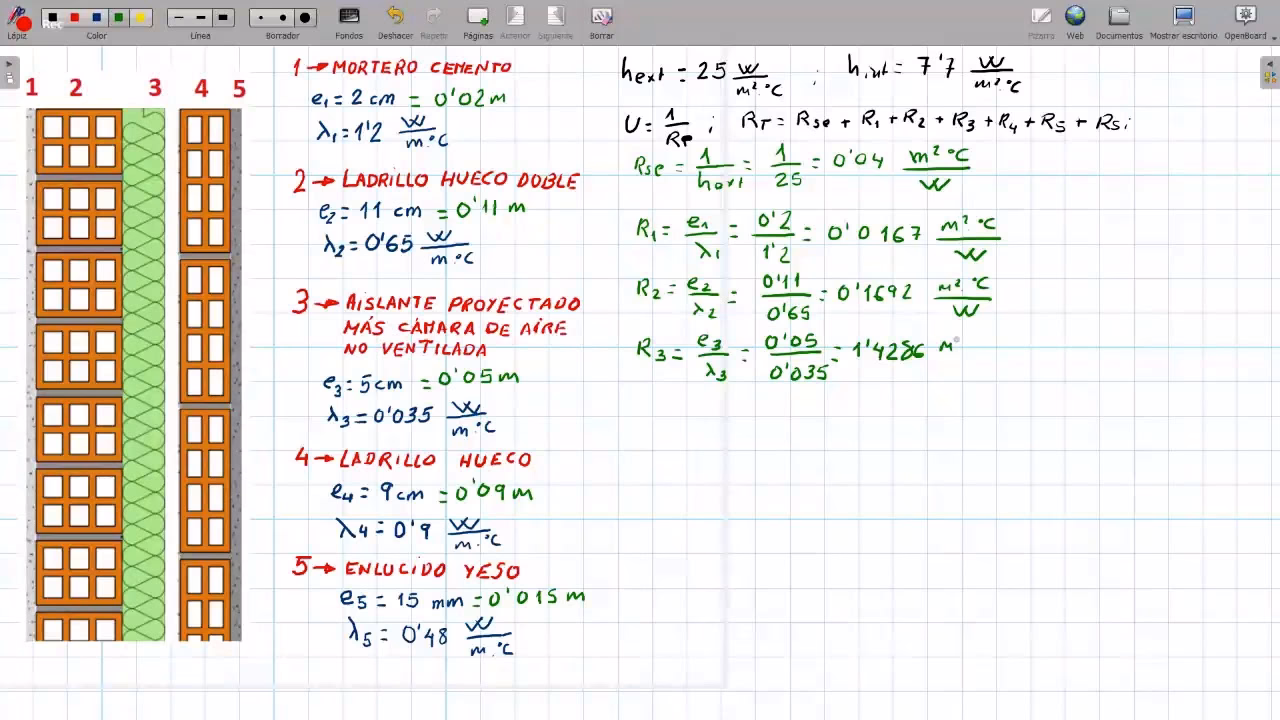 Rec
Lápiz
Color
Línea
Borrador
Fondos
Deshacer
Repetir
Páginas
Anterior
Siguiente
Borrar
Pizarra
Web
Documentos
Mostrar escritorio
OpenBoard
1 2 3 4 5
1 → MORTERO CEMENTO
e1 = 2 cm = 0'02 m
λ1 = 1'2 W/m·°C
2 → LADRILLO HUECO DOBLE
e2 = 11 cm = 0'11 m
λ2 = 0'65 W/m·°C
3 → AISLANTE PROYECTADO
MÁS CÁMARA DE AIRE
NO VENTILADA
e3 = 5cm = 0'05 m
λ3 = 0'035 W/m·°C
4 → LADRILLO HUECO
e4 = 9cm = 0'09 m
λ4 = 0'9 W/m·°C
5 → ENLUCIDO YESO
e5 = 15 mm = 0'015 m
λ5 = 0'48 W/m·°C
hext = 25 W/m²·°C ; hint = 7'7 W/m²·°C
U = 1/RT ; RT = Rse + R1 + R2 + R3 + R4 + R5 + Rsi
Rse = 1/hext = 1/25 = 0'04 m²°C/W
R1 = e1/λ1 = 0'2/1'2 = 0'0167 m²·°C/W
R2 = e2/λ2 = 0'11/0'65 = 0'1692 m²·°C/W
R3 = e3/λ3 = 0'05/0'035 = 1'4286 m